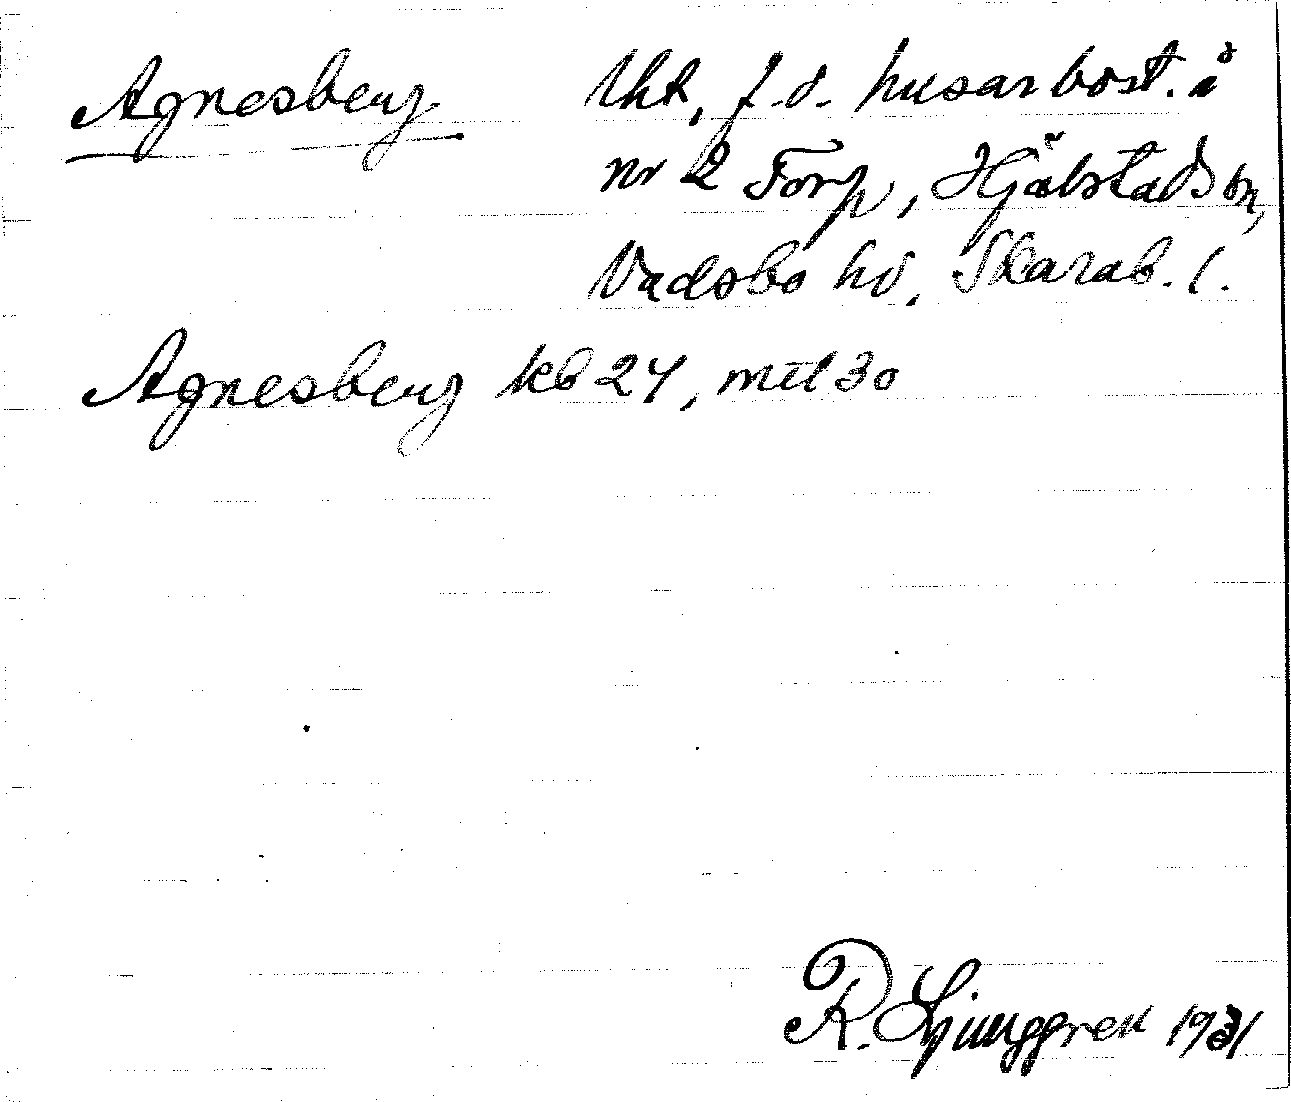 Agnesberg lht, f.d. husarbost. å
nr 2 Torp, Hjälstads sn,
Vadsbo hd, Skarab. l.
Agnesberg kb 24, mtl 30
R. Ljunggren 1931